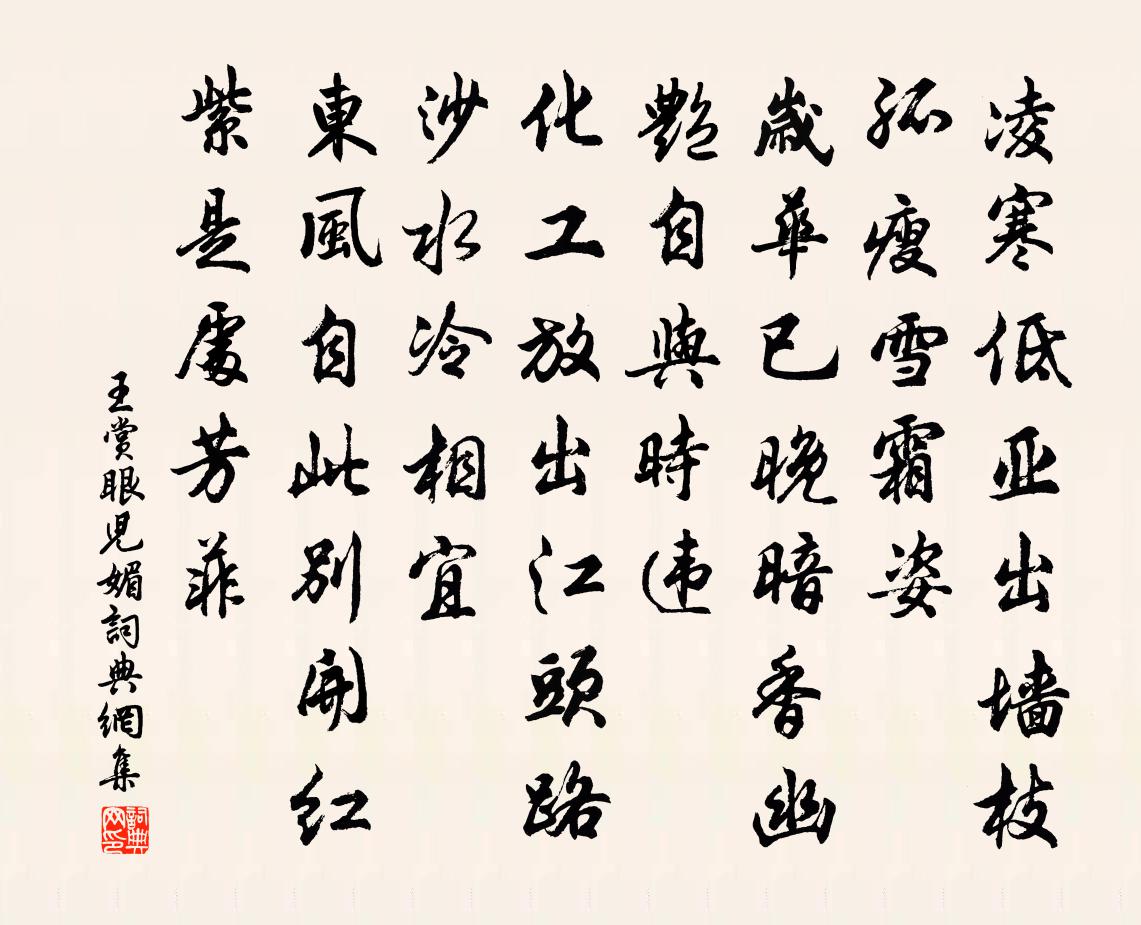 凌寒低亚出墙枝
孤瘦雪霜姿
歲華已晚暗香幽
艷自與時违
化工放出江頭路
沙水冷相宜
東風自此別開红
紫是處芳菲
王赏眼児媚詞典網集
詞典
网印